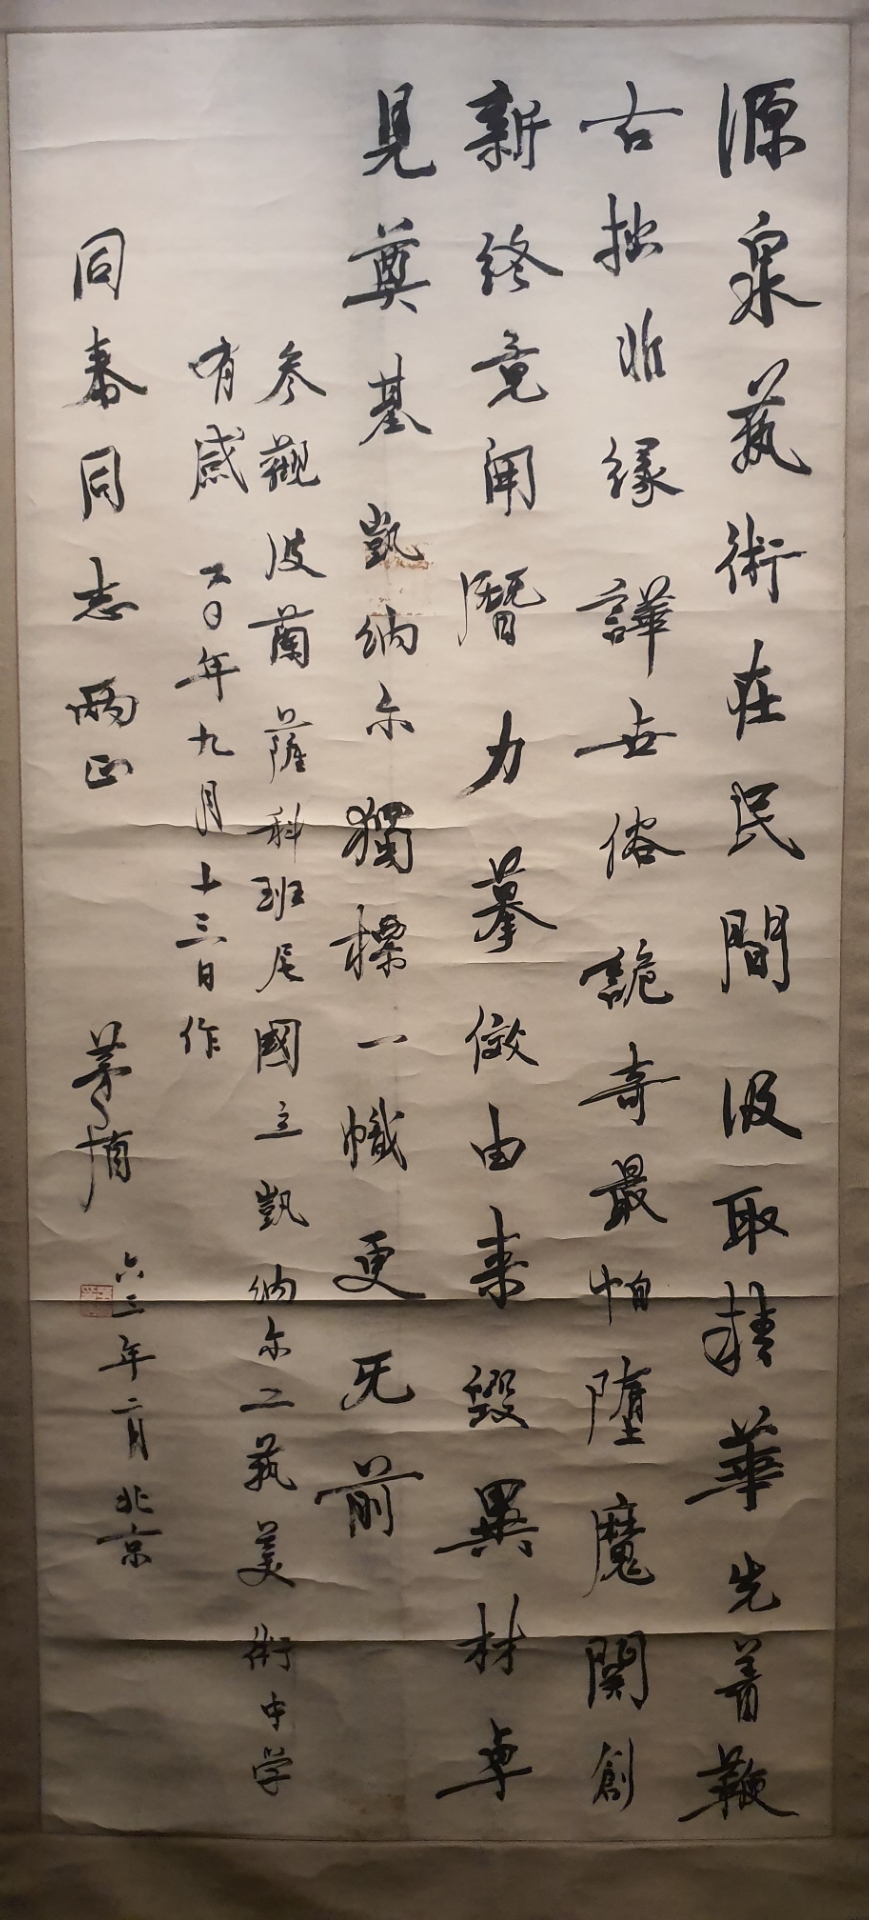 源泉蓺術在民間汲取精華先着鞭
古拙非緣譁世俗詭奇最怕墮魔關創
新終竟開潛力摹倣由来毁異材卓
見奠基凱納尔獨標一幟更无前
参觀波蘭薩科班尼國立凱納尔工蓺美術中学
有感 年九月十三日作
同春同志兩正 茅盾
六三年二月北京